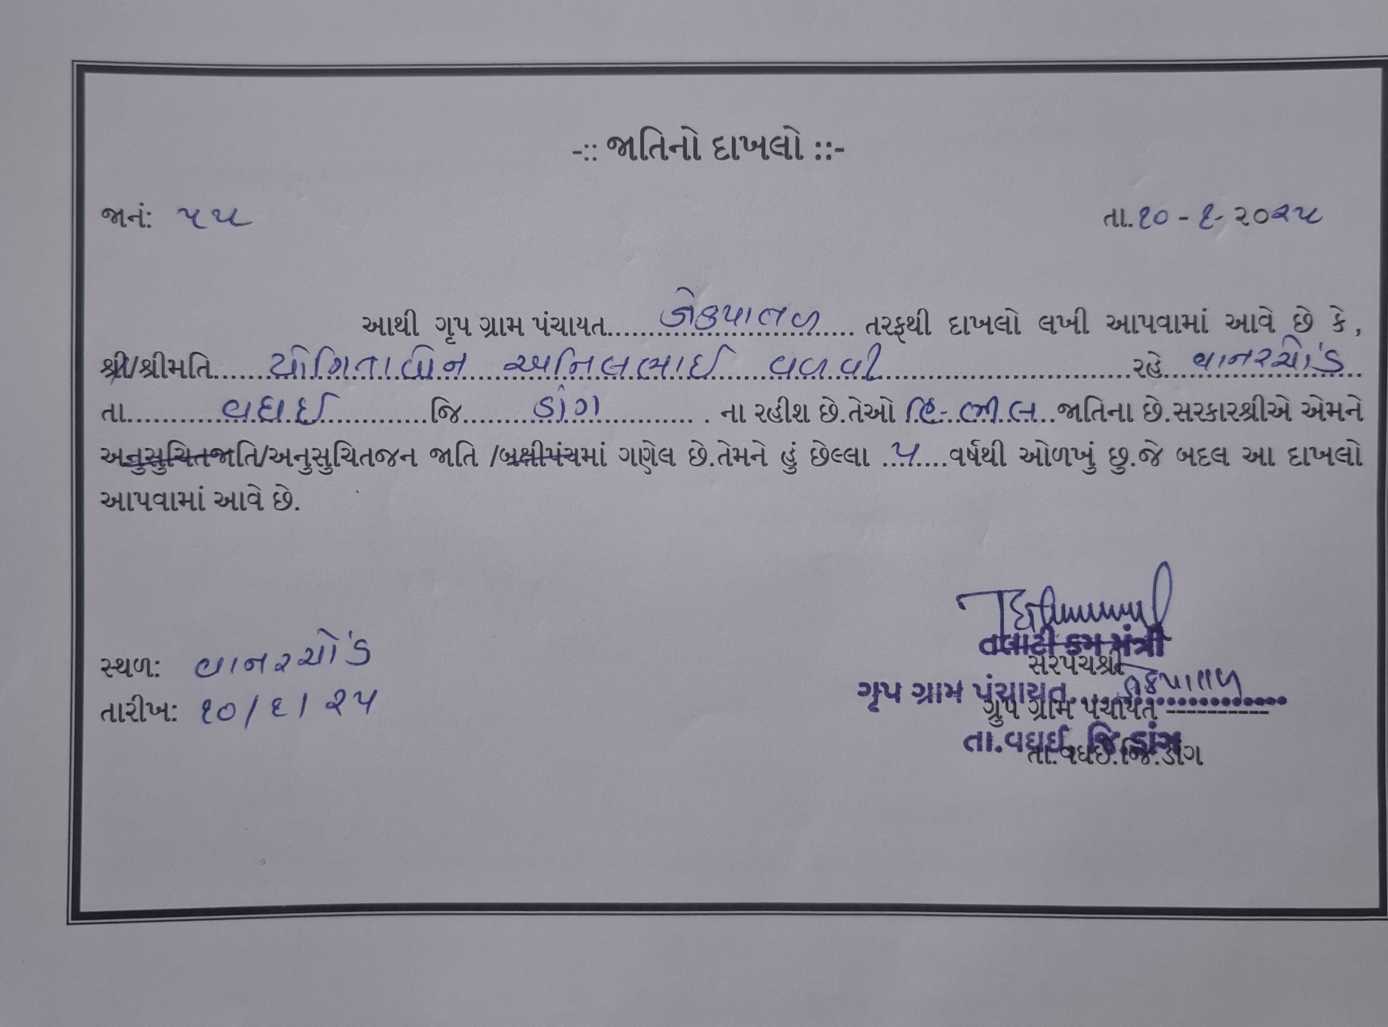 -:: જાતિનો દાખલો ::-
જાનં: ૫૫ તા.૧૦ - ૬- ૨૦૨૫
આથી ગૃપ ગ્રામ પંચાયત......ચીકપાતળ...... તરફથી દાખલો લખી આપવામાં આવે છે કે,
શ્રી/શ્રીમતિ......યોગિતાબેન અનિલભાઈ વળવી......રહે વાનરચોંડ
તા......વઘઈ......જિ......ડાંગ...... . ના રહીશ છે.તેઓ હિ-ભીલ..જાતિના છે.સરકારશ્રીએ એમને
અનુસુચિતજાતિ/અનુસુચિતજન જાતિ /બક્ષીપંચમાં ગણેલ છે.તેમને હું છેલ્લા ...૫....વર્ષથી ઓળખું છુ.જે બદલ આ દાખલો
આપવામાં આવે છે.
તલાટી કમ મંત્રી
સ્થળ: વાનરચોંડ સરપંચશ્રી
ગૃપ ગ્રામ પંચાયત......
તારીખ: ૧૦/૬/૨૫ ગ્રુપ ગ્રામ પંચાયત ----------
તા.વઘઈ, જિ.ડાંગ
તા.વઘઈ.જિ.ડાંગ